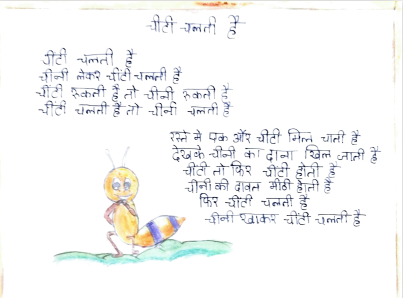 चींटी चलती है
चींटी चलती है
चीनी लेकर चींटी चलती है
चींटी रुकती है तो चीनी रुकती है
चींटी चलती है तो चीनी चलती है
रस्ते में एक और चींटी मिल जाती है
देखके चीनी का दाना खिल जाती है
चींटी तो फिर चींटी होती है
चीनी की दावत मीठी होती है
फिर चींटी चलती है
चीनी खाकर चींटी चलती है